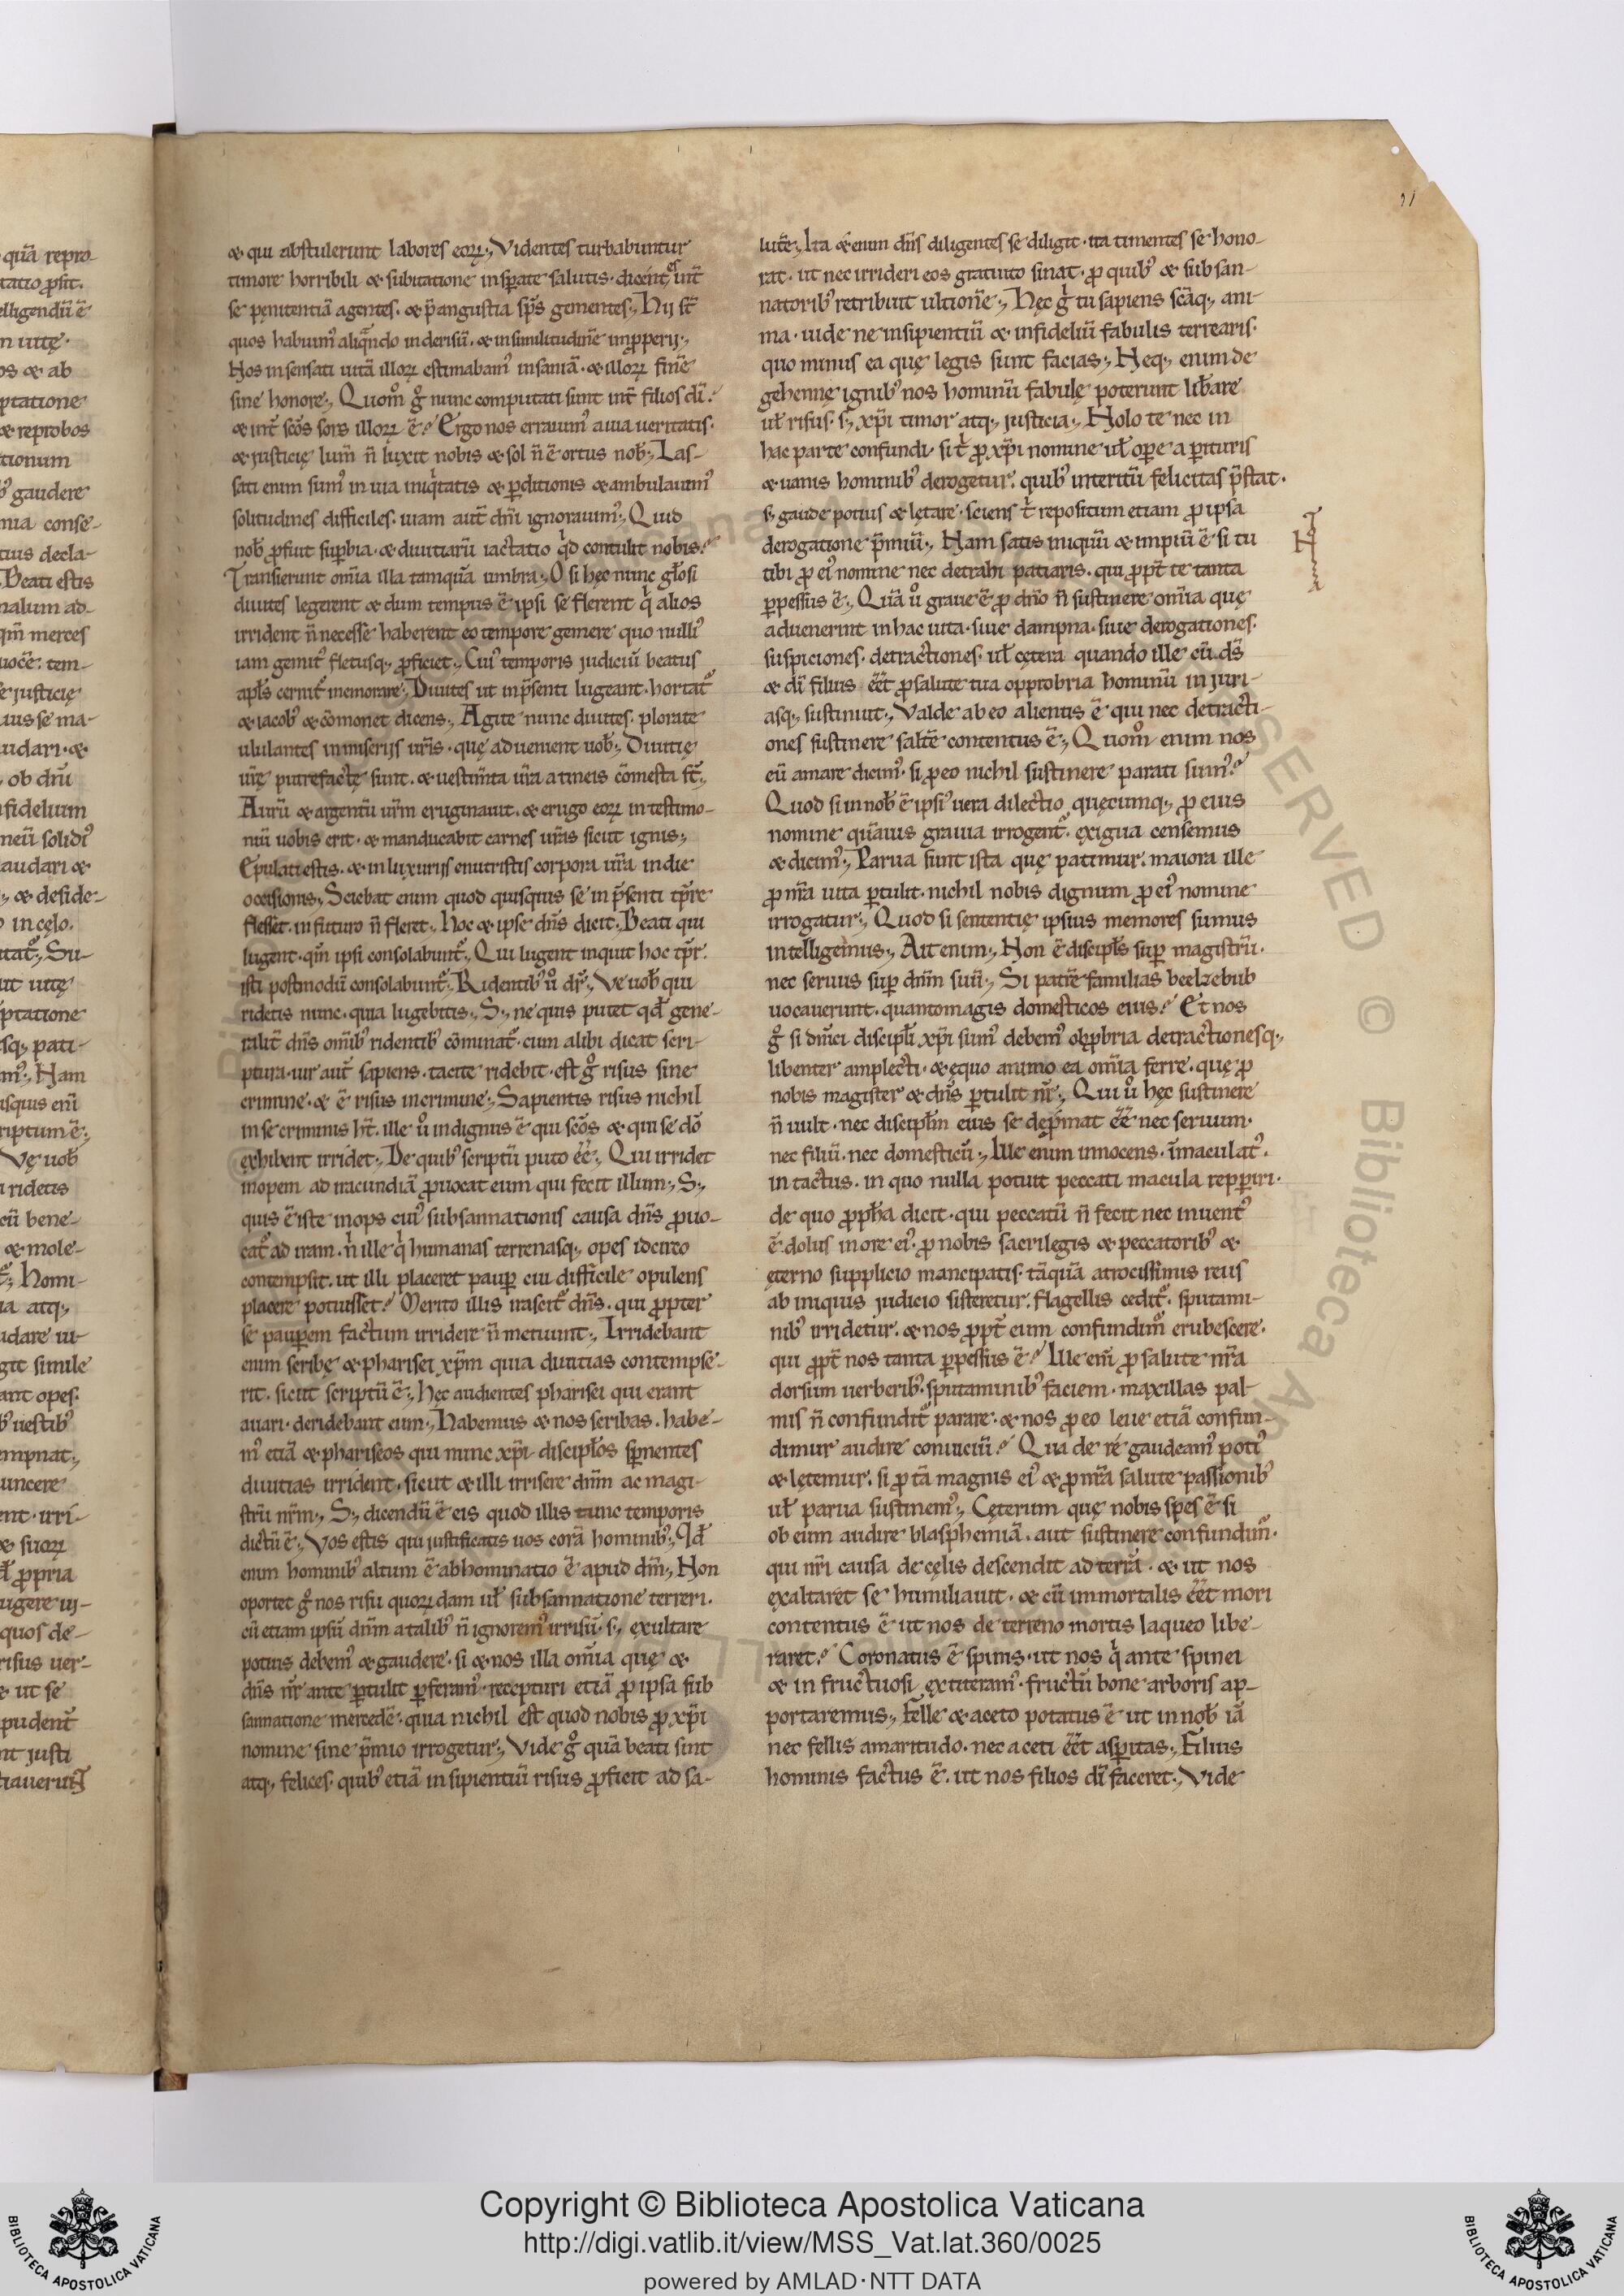 & qui abstulerunt labores eoꝝ. Videntes turbabuntur
timore horribili & subitatione insꝑate salutis. dicent͛es int̄
se pęnitentiā agentes. & p̄ angustia sp̄s gementes. Hij st̄
quos habuimꝰ aliqͣndo in derisū. & in similitudinē inꝓperij.
Nos insensati uitā illoꝝ estimabamꝰ insaniā. & illoꝝ finē
sine honore. Quom̊ g̊ nunc computati sunt int̄ filios di̅?
& int̄ sc̄os sors illoꝝ ē? Ergo nos erravimꝰ a uia ueritatis.
& justicię lum̄ n̄ luxit nobis & sol n̄ ē ortus nob̄. Las-
sati enim sumꝰ in uia iniqͥtatis & ꝑditionis & ambulauimꝰ
solitudines difficiles. uiam aut̄ dn̄i ignorauimꝰ. Quid
nob̄ ꝓfuit suꝑbia. & diuitiarū iactatio qͥd contulit nobis?
Transierunt om̄ia illa tamquā umbra. O si hęc nunc gl̄osi
diuites legerent & dum tempus ē ipsi se flerent qͥ alios
irrident n̄ necesse haberent eo tempore gemere quo nulliꝰ
iam gemitꝰ fletusq; ꝓficiet. Cuiꝰ temporis judiciū beatus
apl̄s cernit͛ memorare. Diuites ut in p̄senti lugeant. hortat͛
& iacobꝰ & cōmonet dicens. Agite nunc diuites. plorate
ululantes in miserijs ur̄is. quę aduenient uob̄. Diuitię
ur̄ę putrefactę sunt. & uestim̄ta ur̄a a tineis cōmesta st̄.
Aurū & argentū ur̄m eruginauit. & erugo eoꝝ in testimo-
niū uobis erit. & manducabit carnes ur̄as sicut ignis.
Epulati estis. & in luxurijs enutristis corpora ur̄a in die
occisionis. Sciebat enim quod quisquis se in p̄senti tp̄re
flesset. in futuro n̄ fleret. Hoc & ipse dn̄s dicit. Beati qui
lugent. qm̄ ipsi consolabunt͛. Qui lugent inquit hoc tp̄r.
isti postmodū consolabunt͛. Ridentibꝰ ů dr̄. Ve uob̄ qui
ridetis nunc. quia lugebitis. S; ne quis putet qd̄ gene-
ralit̄ dn̄s om̄ibꝰ ridentibꝰ cōminat͛. cum alibi dicat scri-
ptura. uir aut̄ sapiens. tacite ridebit. est g̊ risus sine
crimine. & ē risus in crimine. Sapientis risus nichil
in se criminis ht̄. ille ů indignus ē qui sc̄os & qui se dō
exhibent irridet. De quibꝰ scriptū puto ēē. Qui irridet
inopem ad iracundiā ꝓuocat eum qui fecit illum. S;
quis ē iste inops cuiꝰ subsannationis causa dn̄s ꝓuo-
cat͛ ad iram. nͥ ille qͥ humanas terrenasq; opes idcirco
contempsit. ut illi placeret pauꝑ cui difficile opulens
placere potuisset? Merito illis irascit͛ dn̄s. qui ꝓpter
se pauꝑem factum irridere n̄ metuunt. Irridebant
enim scribę & pharisei xp̄m quia diuitias contempse-
rit. sicut scriptū ē. Hęc audientes pharisei qui erant
auari. deridebant eum. Habemus & nos scribas. habe-
mꝰ etiā & phariseos qui nunc xp̄i discipl̄os sꝑnentes
diuitias irrident. sicut & illi irrisere dn̄m ac magi-
strū nr̄m. S; dicendū ē eis quod illis tunc temporis
dictū ē. Vos estis qui justificatis uos corā hominibꝰ. Qd̄
enim hominibꝰ altum ē abhominatio ē apud dm̄. Non
oportet g̊ nos risu quorꝝdam ul̄ subsannatione terreri.
cū etiam ipsū dn̄m a talibꝰ n̄ ignoremꝰ irrisū. s; exultare
potius debemꝰ & gaudere. si & nos illa om̄ia quę &
dn̄s nr̄ ante ꝑtulit ꝑferamꝰ. recepturi etiā ꝓ ipsa sub
sannatione mercedē. quia nichil est quod nobis ꝓ xp̄i
nomine sine p̄mio irrogetur. Vide g̊ quā beati sint
atq; felices. quibꝰ etiā insipientiū risus ꝓficit ad sa-
lutē. Ita & enim dn̄s diligentes se diligit. ita timentes se hono-
rat. ut nec irrideri eos gratuito sinat. ꝓ quibꝰ & subsan-
natoribꝰ retribuit ultionē. Hęc gͥ tu sapiens sc̄aq; ani-
ma. uide ne insipientiū & infideliū fabulis terrearis.
quo minus ea quę legis sunt facias. Neq; enim de
gehennę ignibꝰ nos hominū fabulę poterunt lib̄are
ul̄ risus. s; xp̄i timor atq; justicia. Nolo te nec in
hac parte confundi. si tͥ ꝓ xp̄i nomine ul̄ ope a perituris
& uanis hominibꝰ derogetur. quibꝰ interitū felicitas p̄stat.
s; gaude potius & lętare. sciens tͥ repositum etiam ꝓ ipsa
derogatione p̄miū. Nam satis iniquū & impiū ē si tu
tibi ꝓ eiꝰ nomine nec detrahi patiaris. qui ꝓpt̄ te tanta
ꝑpessus ē. Quā ů graue ē ꝓ dn̄o n̄ sustinere om̄ia quę
aduenerint in hac uita. siue dampna. siue derogationes.
suspiciones. detractiones. ul̄ cętera quando ille cū ds̄
& di̅ filius ēēt ꝓ salute tua opprobria hominū injuri-
asq; sustinuit. Valde ab eo alienus ē qui nec detracti-
ones sustinere saltē contentus ē. Quom̊ enim nos
eū amare dicimꝰ. si ꝓ eo nichil sustinere parati sumꝰ?
Quod si in nob̄ ē ipsiꝰ uera dilectio quęcumq; ꝓ eius
nomine quāuis grauia irrogent͛. exigua censemus
& dicimꝰ. Parua sunt ista quę patimur. maiora ille
ꝓ nr̄a uita ꝑtulit. nichil nobis dignum ꝓ eiꝰ nomine
irrogatur. Quod si sententię ipsius memores sumus
intelligemus. Ait enim. Non ē discipl̄s suꝑ magistrū.
nec seruus suꝑ dn̄m suū. Si patrē familias beelzebub
uocauerunt. quantomagis domesticos eius? Et nos
g̊ si dn̄ici discipl̄i xp̄i sumꝰ debemꝰ obꝓbria detractionesq;
libenter amplecti. & ęquo animo ea om̄ia ferre. quę ꝓ
nobis magister & dn̄s ꝑtulit nr̄. Qui ů hęc sustinere
n̄ uult. nec discipl̄m eius se dep̄mat ēē nec seruum.
nec filiū. nec domesticū. Ille enim innocens. īmaculatꝰ.
intactus. in quo nulla potuit peccati macula repꝑiri.
de quo ꝓph̄a dicit. qui peccatū n̄ fecit nec inuentꝰ
ē dolus in ore eiꝰ. ꝓ nobis sacrilegis & peccatoribꝰ &
ęterno supplicio mancipatis. tāquā atrocissimus reus
ab iniquis judicio sisteretur. flagellis cedit͛. sputami-
nibꝰ irridetur. & nos ꝓpt̄ eum confundim͛ erubescere.
qui ꝓpt̄ nos tanta ꝑpessus ē? Ille eni̅ ꝓ salute nr̄a
dorsum uerberibꝰ. sputaminibꝰ faciem. maxillas pal-
mis n̄ confundit͛ parare. & nos ꝓ eo leue etiā confun-
dimur audire conuiciū? Qua de re gaudeamꝰ potiꝰ
& lętemur. si ꝓ tā magnis eiꝰ & ꝓ nr̄a salute passionibꝰ
ul̄ parua sustinemꝰ. Cęterum quę nobis spes ē si
ob eum audire blasphemiā. aut sustinere confundim͛.
qui nr̄i causa de cęlis descendit ad terrā. & ut nos
exaltaret se humiliauit. & cū immortalis ēēt mori
contentus ē ut nos de terreno mortis laqueo libe-
raret? Coronatus ē spinis. ut nos qͥ ante spinei
& infructuosi extiteramꝰ. fructū bone arboris ap-
portaremus. Felle & aceto potatus ē ut in nob̄ iā
nec fellis amaritudo. nec aceti ēēt asꝑitas. Filius
hominis factus ē. ut nos filios di̅ faceret. Vide
Copyright © Biblioteca Apostolica Vaticana
http://digi.vatlib.it/view/MSS_Vat.lat.360/0025
powered by AMLAD·NTT DATA
BIBLIOTECA APOSTOLICA VATICANA
BIBLIOTECA APOSTOLICA VATICANA